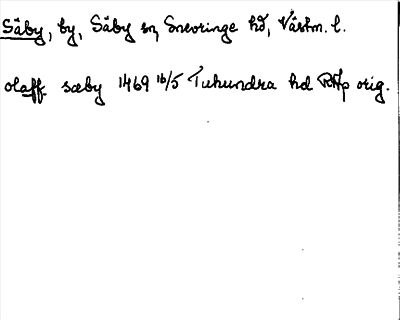 Säby, by, Säby sn, Snevringe hd, Västm. l.
olaff sæby 1469 16/5 Tuhundra hd RAp orig.